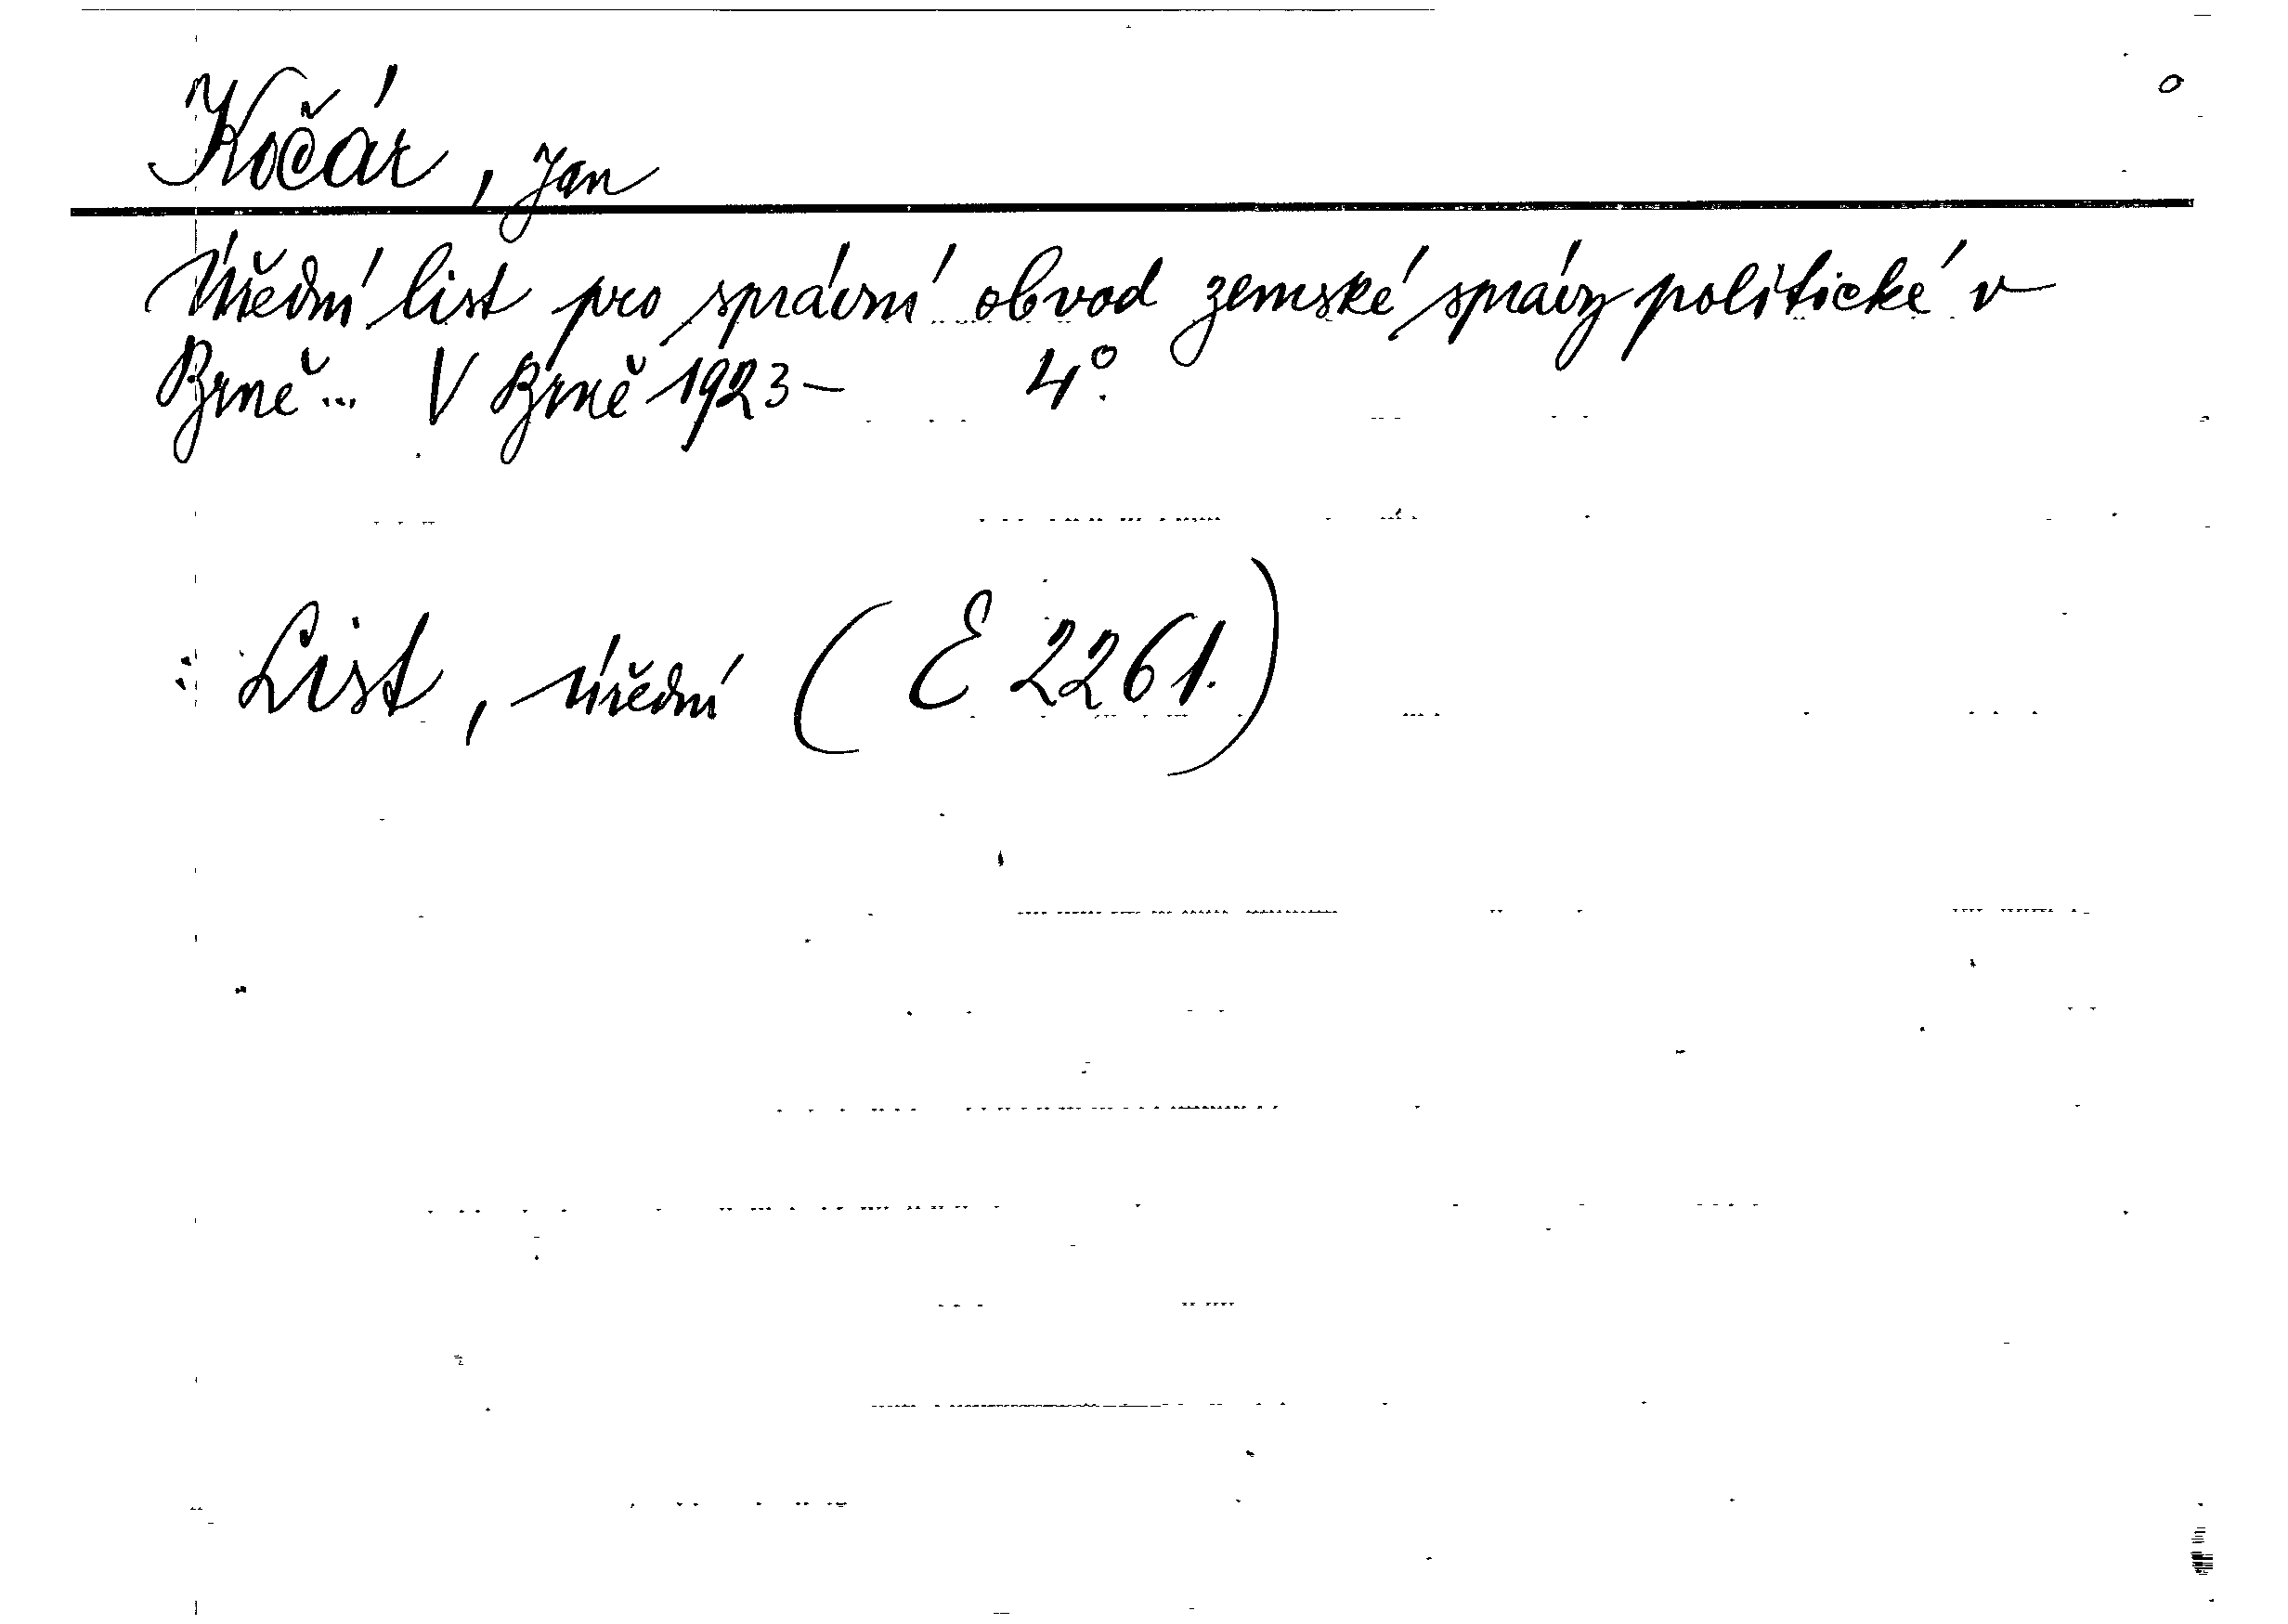 Kočár, Jan
Úřední list pro správní obvod zemské správy politické v
Brně... V Brně 1923- 4°.
: List, úřední (E 2261.)